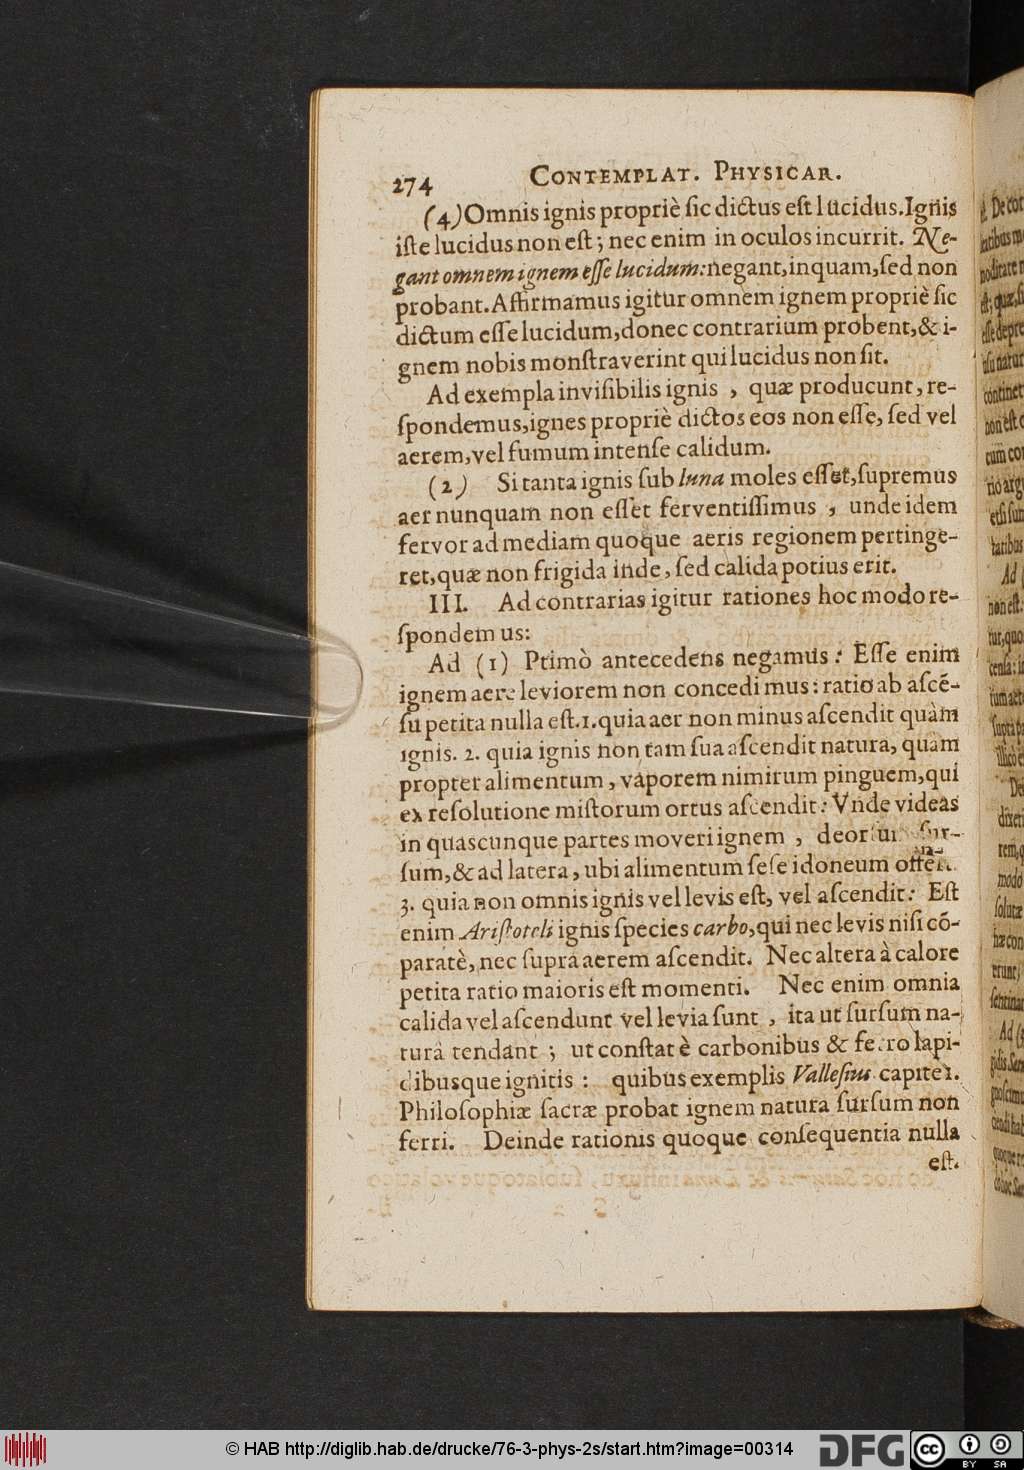 274 CONTEMPLAT. PHYSICAR.
(4) Omnis ignis propriè ſic dictus eſt lucidus. Ignis
iſte lucidus non eſt; nec enim in oculos incurrit. Ne-
gant omnem ignem eſſe lucidum: negant, inquam, ſed non
probant. Affirmamus igitur omnem ignem propriè ſic
dictum eſſe lucidum, donec contrarium probent, & i-
gnem nobis monſtraverint qui lucidus non ſit.
Ad exempla inviſibilis ignis, quæ producunt, re-
ſpondemus, ignes propriè dictos eos non eſſe, ſed vel
aerem, vel fumum intenſe calidum.
(2) Si tanta ignis ſub luna moles eſſet, ſupremus
aer nunquam non eſſet ferventiſſimus, unde idem
fervor ad mediam quoque aeris regionem pertinge-
ret, quæ non frigida inde, ſed calida potius erit.
III. Ad contrarias igitur rationes hoc modo re-
ſpondemus:
Ad (1) Primò antecedens negamus: Eſſe enim
ignem aere leviorem non concedimus: ratio ab aſcē-
ſu petita nulla eſt. 1. quia aer non minus aſcendit quàm
ignis. 2. quia ignis non tam ſua aſcendit natura, quàm
propter alimentum, vaporem nimirum pinguem, qui
ex reſolutione miſtorum ortus aſcendit: Vnde videas
in quaſcunque partes moveri ignem, deorſum ſur-
ſum, & ad latera, ubi alimentum ſeſe idoneum offert.
3. quia non omnis ignis vel levis eſt, vel aſcendit: Eſt
enim Ariſtoteli ignis ſpecies carbo, qui nec levis niſi cō-
paratè, nec ſupra aerem aſcendit. Nec altera à calore
petita ratio maioris eſt momenti. Nec enim omnia
calida vel aſcendunt vel levia ſunt, ita ut ſurſum na-
turâ tendant; ut conſtat è carbonibus & ferro lapi-
dibusque ignitis: quibus exemplis Valleſius capite 1.
Philoſophiæ ſacræ probat ignem natura ſurſum non
ferri. Deinde rationis quoque conſequentia nulla
eſt.
© HAB http://diglib.hab.de/drucke/76-3-phys-2s/start.htm?image=00314
DFG
cc BY SA